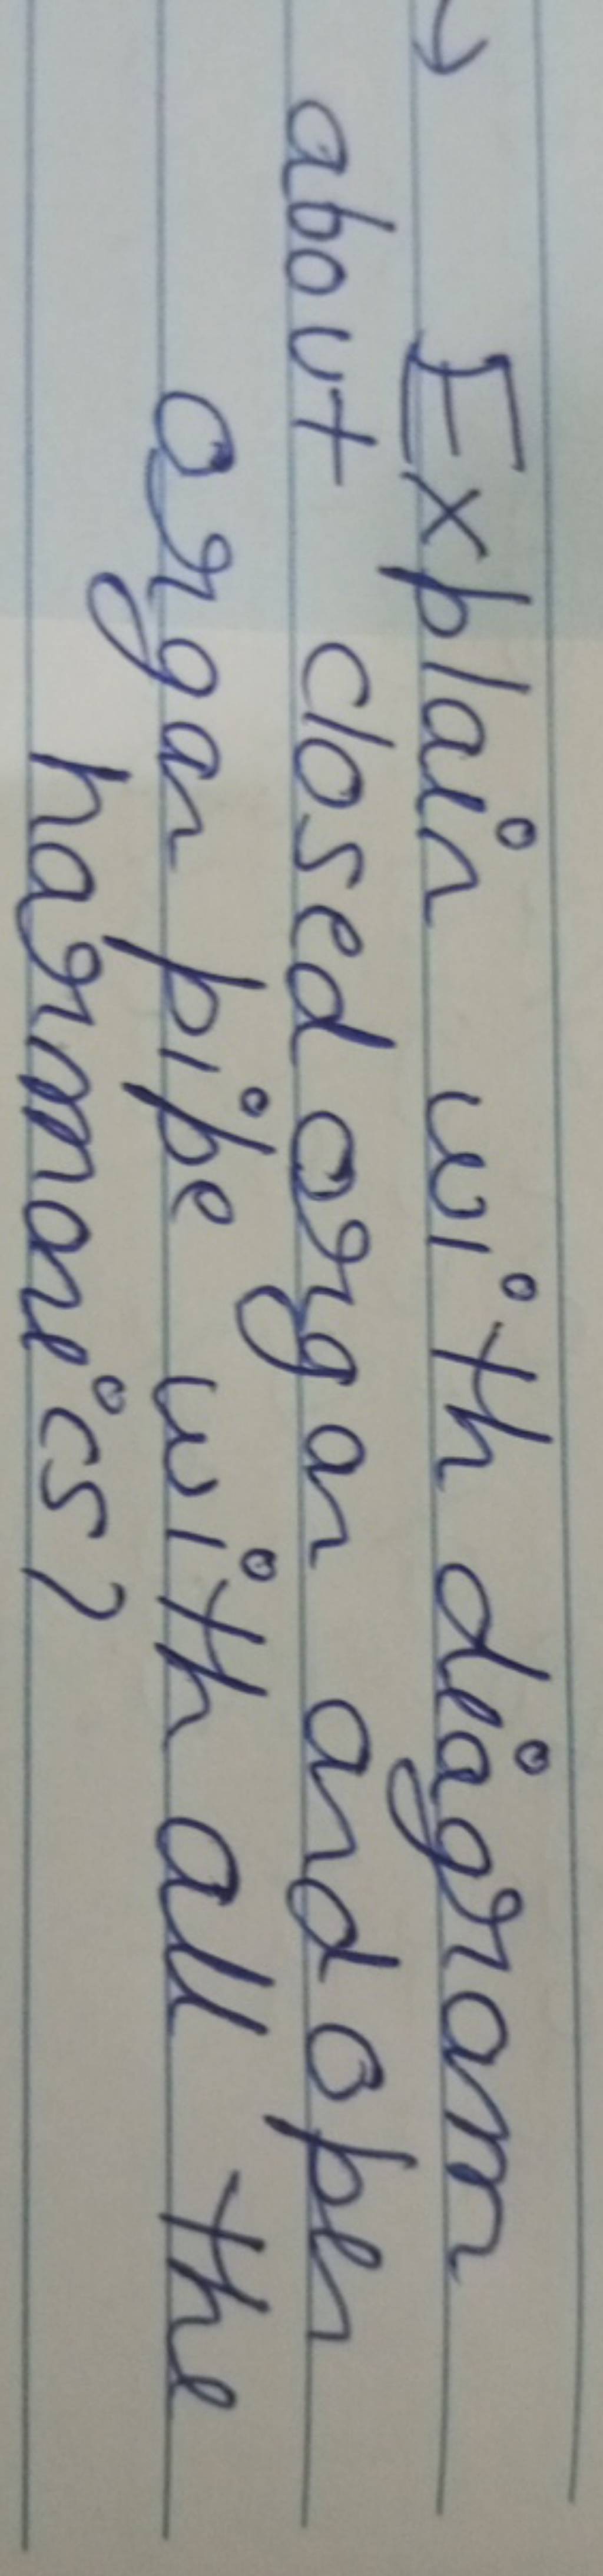 → Explain with diagram
about closed organ and open
organ pipe with all the
harmonics?